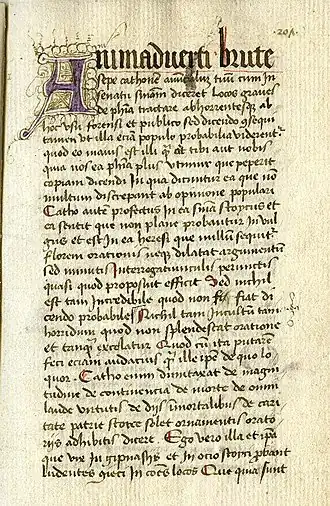 201
Animaduerti brute
sepe cathone auu͞culu͞ tuu͞ cum in
senatu s͞niam diceret Locos graues
de ph͞ia tractare abhorrentesqꝫ ab
hoc usu forensi et publico sed dicendo ꝯsequi
tamen ut illa eciam populo probabilia viderent͛
quod eo maius est illi qꝫ aut tibi aut nobis
quia nos ea ph͞ia plus vtimur que peperit
copiam dicendi In qua dicuntur ea que no͞
multum discrepant ab opinione populari
Catho aute͞ perfectus in ea s͞nia stoycus et
ea sentit que non plane probantur in vul
gus et est in ea heresi que nullu͞ sequit͛
florem orationis neqꝫ dilatat argumentu͞
sed minutis Interrogatiunculis punctis
quasi quod proposuit efficit Sed nichil
est tam incredibile quod non fiat di
cendo probabile Nichil tam Incultu͞ tam
horridum quod non splendescat oratione
et tanqꝫ excolatur Quod cu͞ ita putare͞
feci eciam audacius qꝫ ille ipse de quo lo
quor Catho enim dumtaxat de magni
tudine de continencia de morte de omni
laude virtutis de dijs immortalibus de cari
tate patrie stoyce solet ornamentis orato
rijs adhibitis dicere Ego vero illa et ip͞a
que vix in gipnasijs et in ocio stoyci ꝓbant
ludentes ꝯieci in co͞es locos Que quia sunt